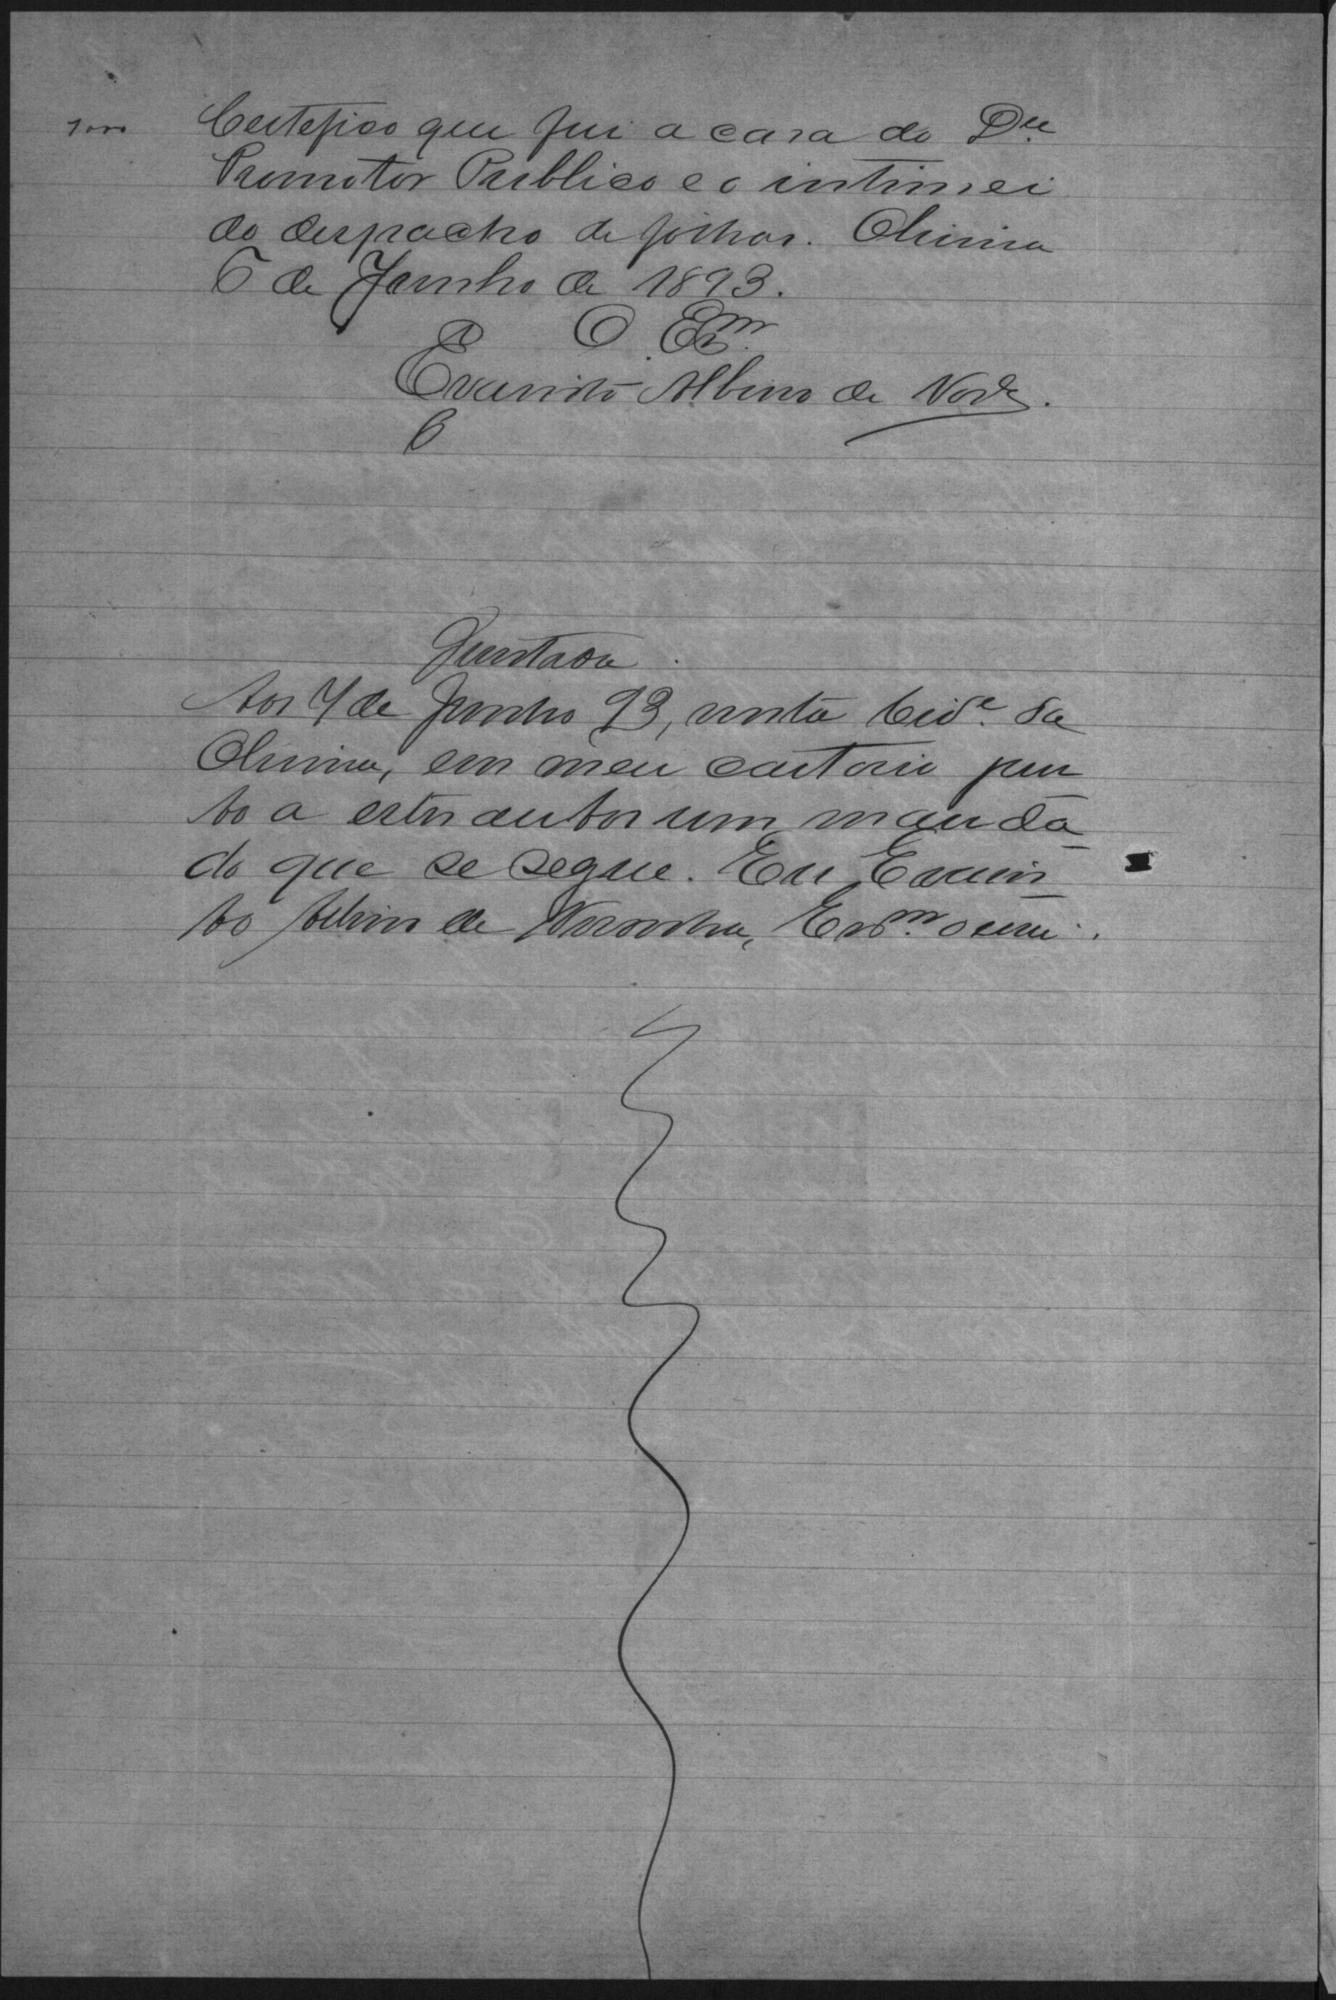 1000
Certefico que fui a casa do Dr.
Promotor Publico e o intimei
do despacho de folhas. Olivina
6 de Junho de 1893.
O Esm.
Evaristo Albino de Nor.
Juntada.
Aos 7 de Junho 93, nesta Cide. da
em meu cartorio jun
to a estes autos um manda
do que se segue. Eu Evaris
to Albino de Noronha, Esm. o escrevi.